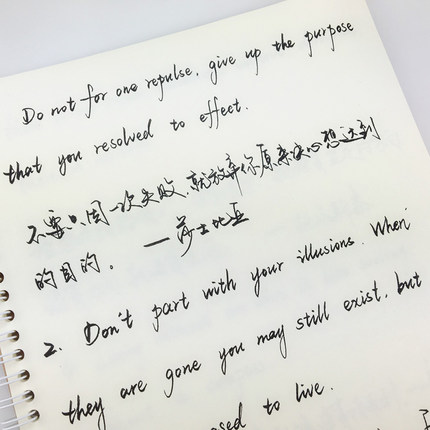 Do not for one repulse, give up the purpose
that you resolved to effect.
不要只因一次失败,就放弃你原来决心想达到
的目的。 —莎士比亚
2. Don't part with your illusions. When
they are gone you may still exist, but
to live.